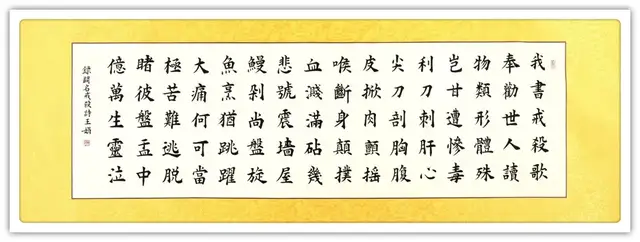 我書戒殺歌
奉勸世人讀
物類形體殊
豈甘遭慘毒
利刀刺肝心
尖刀剖胸腹
皮掀肉顫摇
喉斷身顛撲
血濺滿砧幾
悲號震墙屋
鰻剥尚盤旋
魚烹猶跳躍
大痛何可當
極苦難逃脱
睹彼盤盂中
億萬生靈泣
録闕名戒殺詩王娟